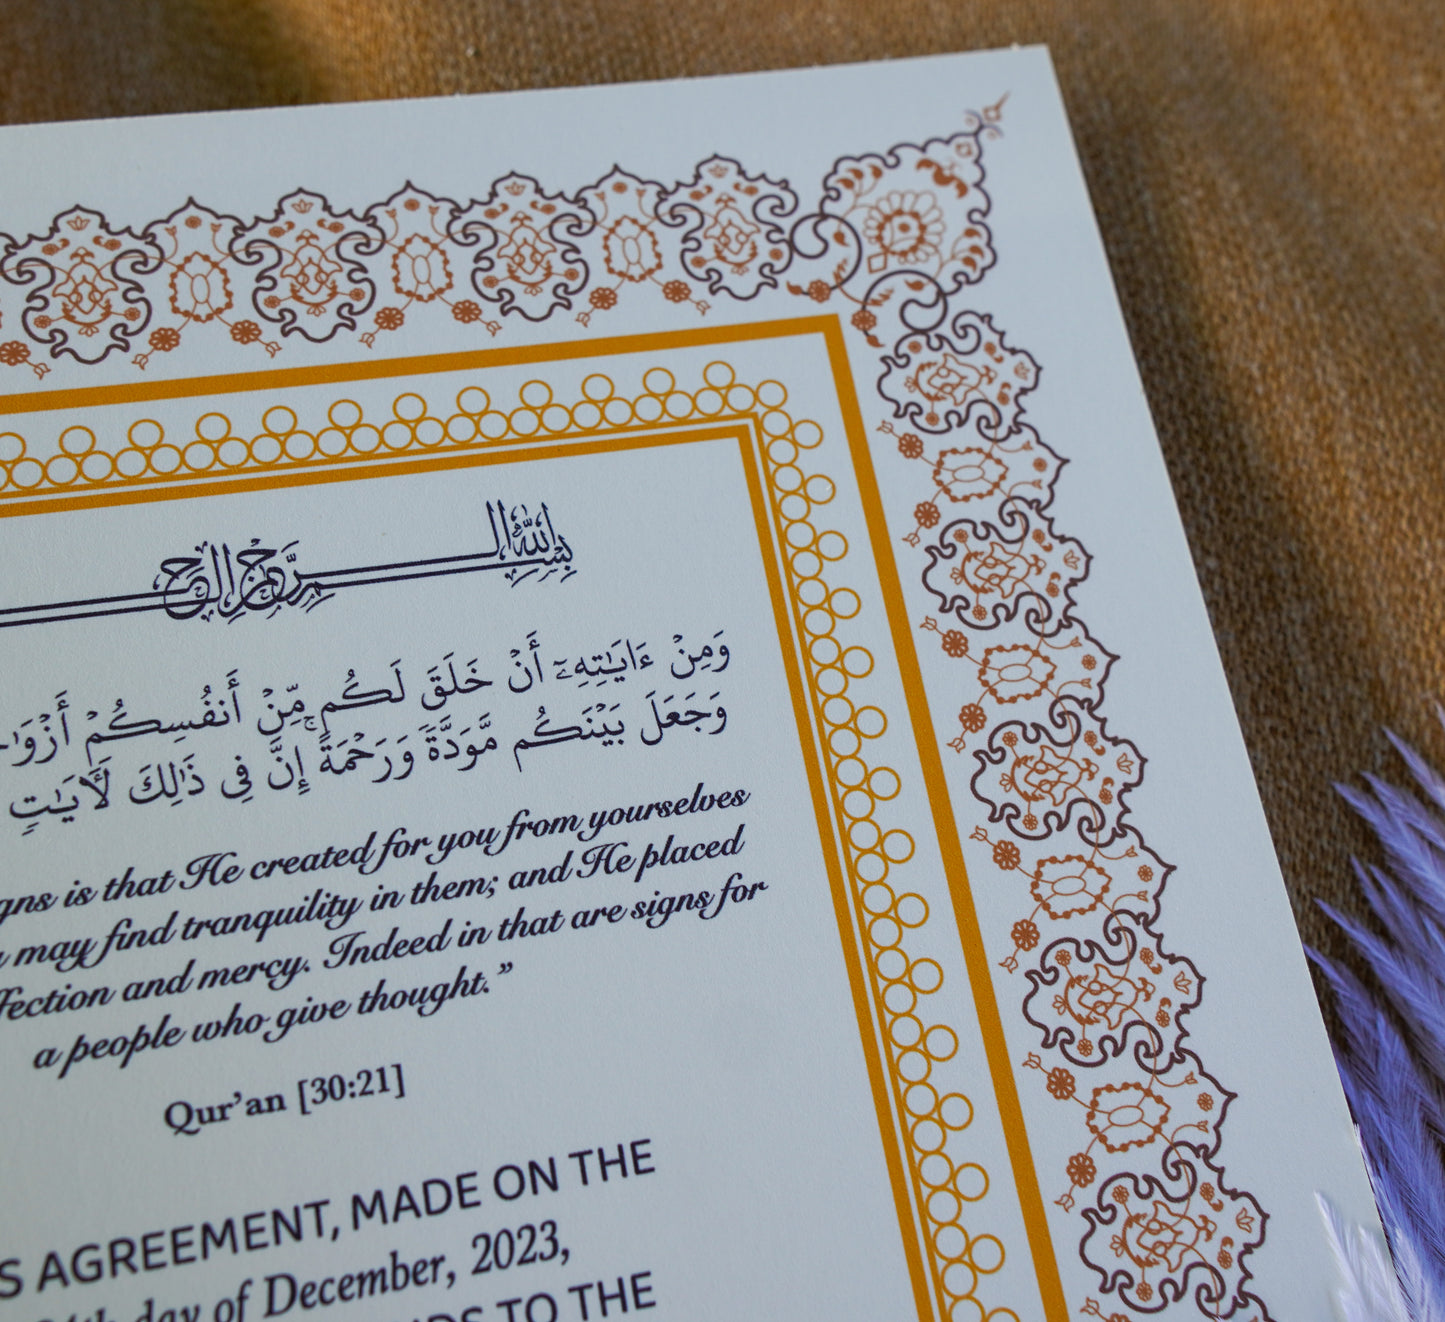 بِسْمِ اللهِ الرَّحْمٰنِ الرَّحِيمِ
وَمِنْ ءَايَٰتِهِۦٓ أَنْ خَلَقَ لَكُم مِّنْ أَنفُسِكُمْ
وَجَعَلَ بَيْنَكُم مَّوَدَّةً وَرَحْمَةً ۚ إِنَّ فِى ذَٰلِكَ لَءَايَٰتٍ
is that He created for you from yourselves
may find tranquility in them; and He placed
and mercy. Indeed in that are signs for
a people who give thought.”
Qur’an [30:21]
AGREEMENT, MADE ON THE
day of December, 2023,
TO THE